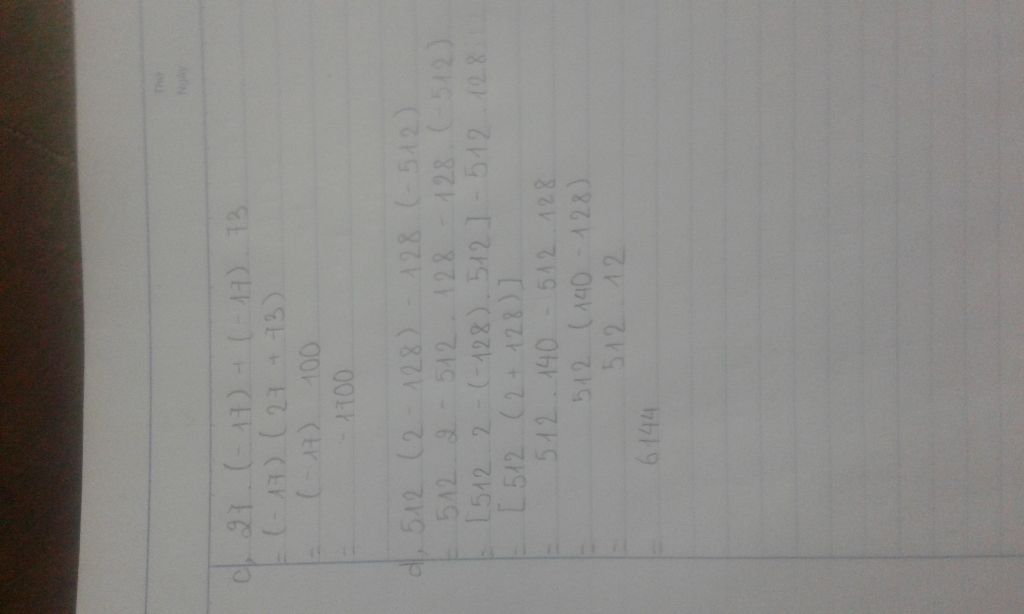 Thứ
Ngày
c, 27 . (-17) + (-17) . 73
= (-17) (27 + 73)
= (-17) 100
= -1700
d, 512 (2 - 128) - 128 (-512)
= 512 2 - 512 . 128 - 128 . (-512)
= [512 2 - (-128) . 512] - 512 . 128
= [512 (2 + 128)]
= 512 . 140 - 512 . 128
= 512 (140 - 128)
= 512 . 12
= 6144